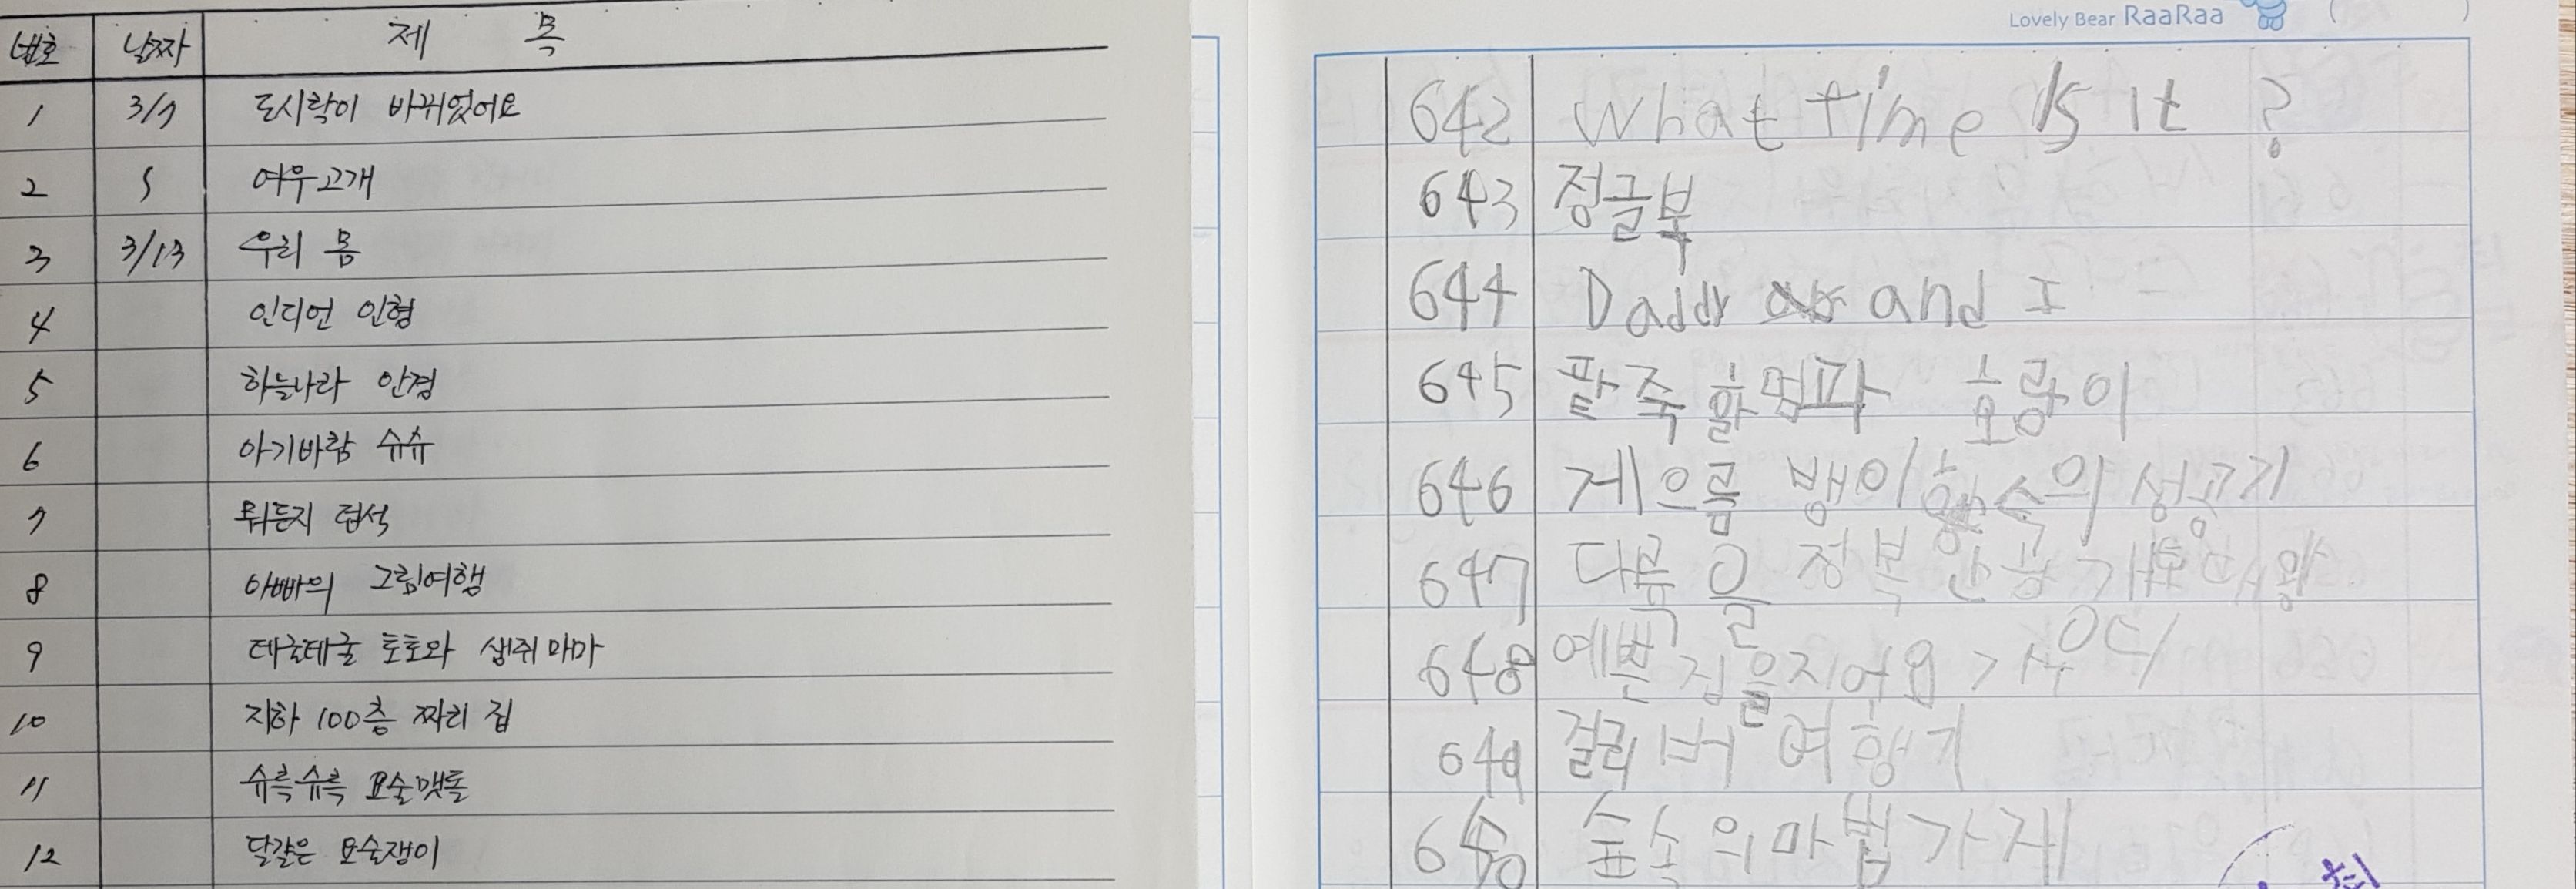 번호 날짜 제 목
1 3/7 도시락이 바뀌었어요
2 5 여우고개
3 3/13 우리 몸
4 인디언 인형
5 하늘나라 안경
6 아기바람 슈슈
7 뭐든지 덥석
8 아빠의 그림여행
9 데굴데굴 토토와 생쥐마마
10 지하 100층 짜리 집
11 슈륵슈륵 요술맷돌
12 달걀은 요술쟁이
Lovely Bear RaaRaa
642 What time Is it ?
643 정글북
644 Daddy and I
645 팥죽 할멈과 호랑이
646 게으름 뱅이 의 성공기
647 다륙을 정복 한 광개토대왕
648 예쁜 집을지어요
649 걸리버 여행기
650 숲속의마법가게